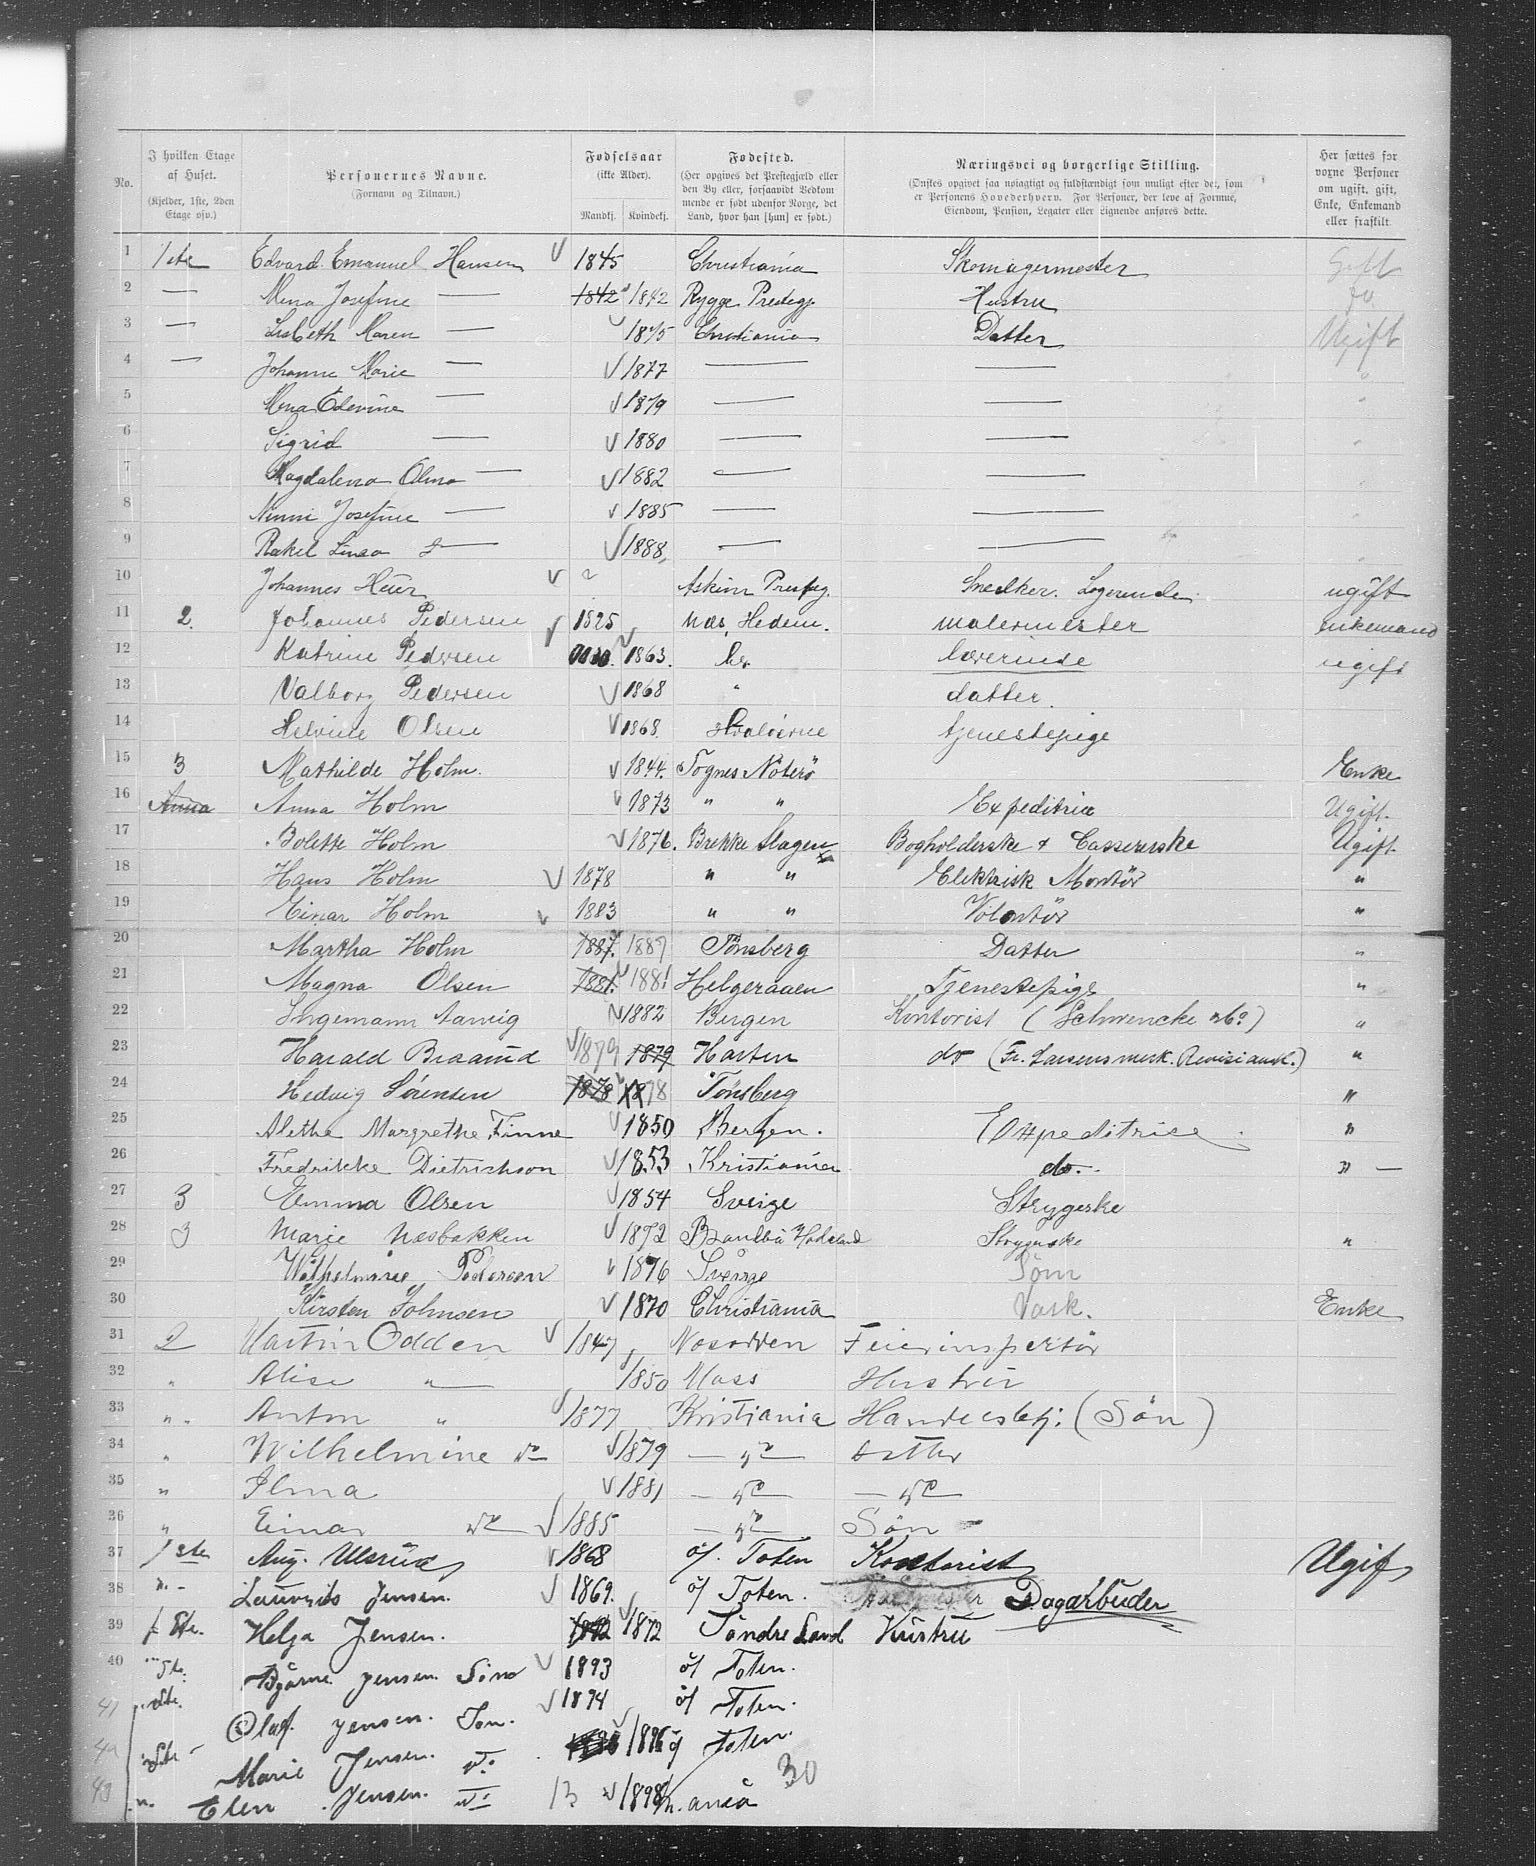 No.
I hvilken Etage af Huset.
(Kjelder, 1ste, 2den Etage osv.)
Personernes Navne.
(Fornavn og Tilnavn.)
Fødselsaar
(ikke Alder).
Mandkj. Kvindekj.
Fødested.
(Her opgives det Prestegjæld eller den By eller, forsaavidt Vedkommende er født udenfor Norge, det Land, hvor han [hun] er født.)
Næringsvei og borgerlige Stilling.
(Ønskes opgivet saa nøiagtigt og fuldstændigt som muligt efter det, som er Personens Hovederhverv. For Personer, der leve af Formue, Eiendom, Pension, Legater eller Lignende anføres dette.
Her sættes for voxne Personer om ugift, gift, Enke, Enkemand eller fraskilt.
1 1ste Edvard Emanuel Hansen 1845 Christiania Skomagermester Gift
2 — Mina Josefine — 1842 1842 Rygge Prestegj. Hustru
3 — Lisbeth Maren — 1875 Christiania Datter Ugift
4 — Johanne Marie — 1877 — — "
5 Mina Edevine — 1879 — — "
6 Sigrid — 1880 — — "
7 Magdalena Olma — 1882 — —
8 Ninni Josefine — 1885 — —
9 Rakel Linea — 1888 — —
10 Johannes Heier Askim Presteg. Snedker. Logerende ugift
11 2. Johannes Pedersen 1825 Næs, Hedem. malermester enkemand
12 Katrine Pedersen 1863. her lærerinde ugift
13 Valborg Pedersen 1868 " datter.
14 Helvine Olsen 1868. Hvaløerne tjenestepige
15 3 Mathilde Holm. 1844. Tognes Nöterö Enke
16 Anna Anna Holm 1873 " " Expeditrice Ugift.
17 Bolette Holm 1876. Brekke Slagen Bogholderske & Cassererske Ugift
18 Hans Holm 1878 " " Elektrisk Montör "
19 Einar Holm 1883 " " Volontör "
20 Martha Holm 1887. 1887 Tönsberg Datter "
21 Magna Olsen 1881. 1881 Helgeraaen Tjenestepige "
22 Ingemann Aamig 1882 Bergen Kontorist (Schwencke & Co) "
23 Harald Braarud 1879 1879 Horten do (Fr. Larsens merk. Revisiansk.) "
24 Hedvig Sörensen 1878 1878 Tönsberg "
25 Alethe Margrethe Finne 1850 Bergen. Expeditrice "
26 Fredrikke Dietrichson 1853 Kristiania do. " —
27 3 Emma Olsen 1854 Sverige Strygerske
28 3 Marie Næsbakken 1872 Brandbu Hadeland Strygerske "
29 Wilhelmine Pedersen 1876 Sverige Söm
30 Kirsten Johnsen 1870 Christiania Vask. Enke
31 2 Martin Odden 1847 Nesodden Feierinspektör
32 " Alise " 1850 Moss Hustru
33 " Anton " 1877 Kristiania Handelsbetj: (Sön)
34 " Wilhelmine do 1879 — do — datter
35 " Ilma 1881 — do — — do —
36 " Einar do 1885 — do — Sön
37 1ste Aug. Ulsrud 1868 ö/. Toten Kontorist Ugift
38 " Lauvrits Jensen. 1869. ö/ Toten. Dagarbuder
39 1 Ste. Helga Jensen. 1872 1872 Söndre Land Hustru
40 " Ste. Bjarne Jensen. Sön 1893 ö/ Toten.
41 Ste. Olaf. Jensen. Sön. 1894 ö/ Toten.
42 Ste Marie Jensen. do 1896 ö/ Toten.
43 " Elen Jensen. do 13 1898 Kr.ania 30